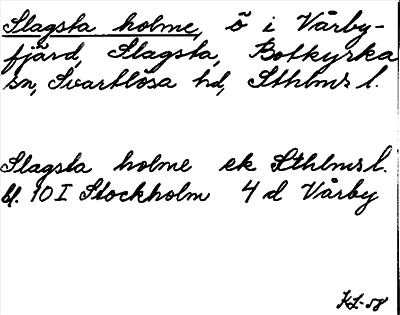 Slagsta holme, ö i Vårby-
fjärd, Slagsta, Botkyrka
sn, Svartlösa hd, Sthlms l.
Slagsta holme ek Sthlms l.
bl. 10 I Stockholm 4 d Vårby
KL-58